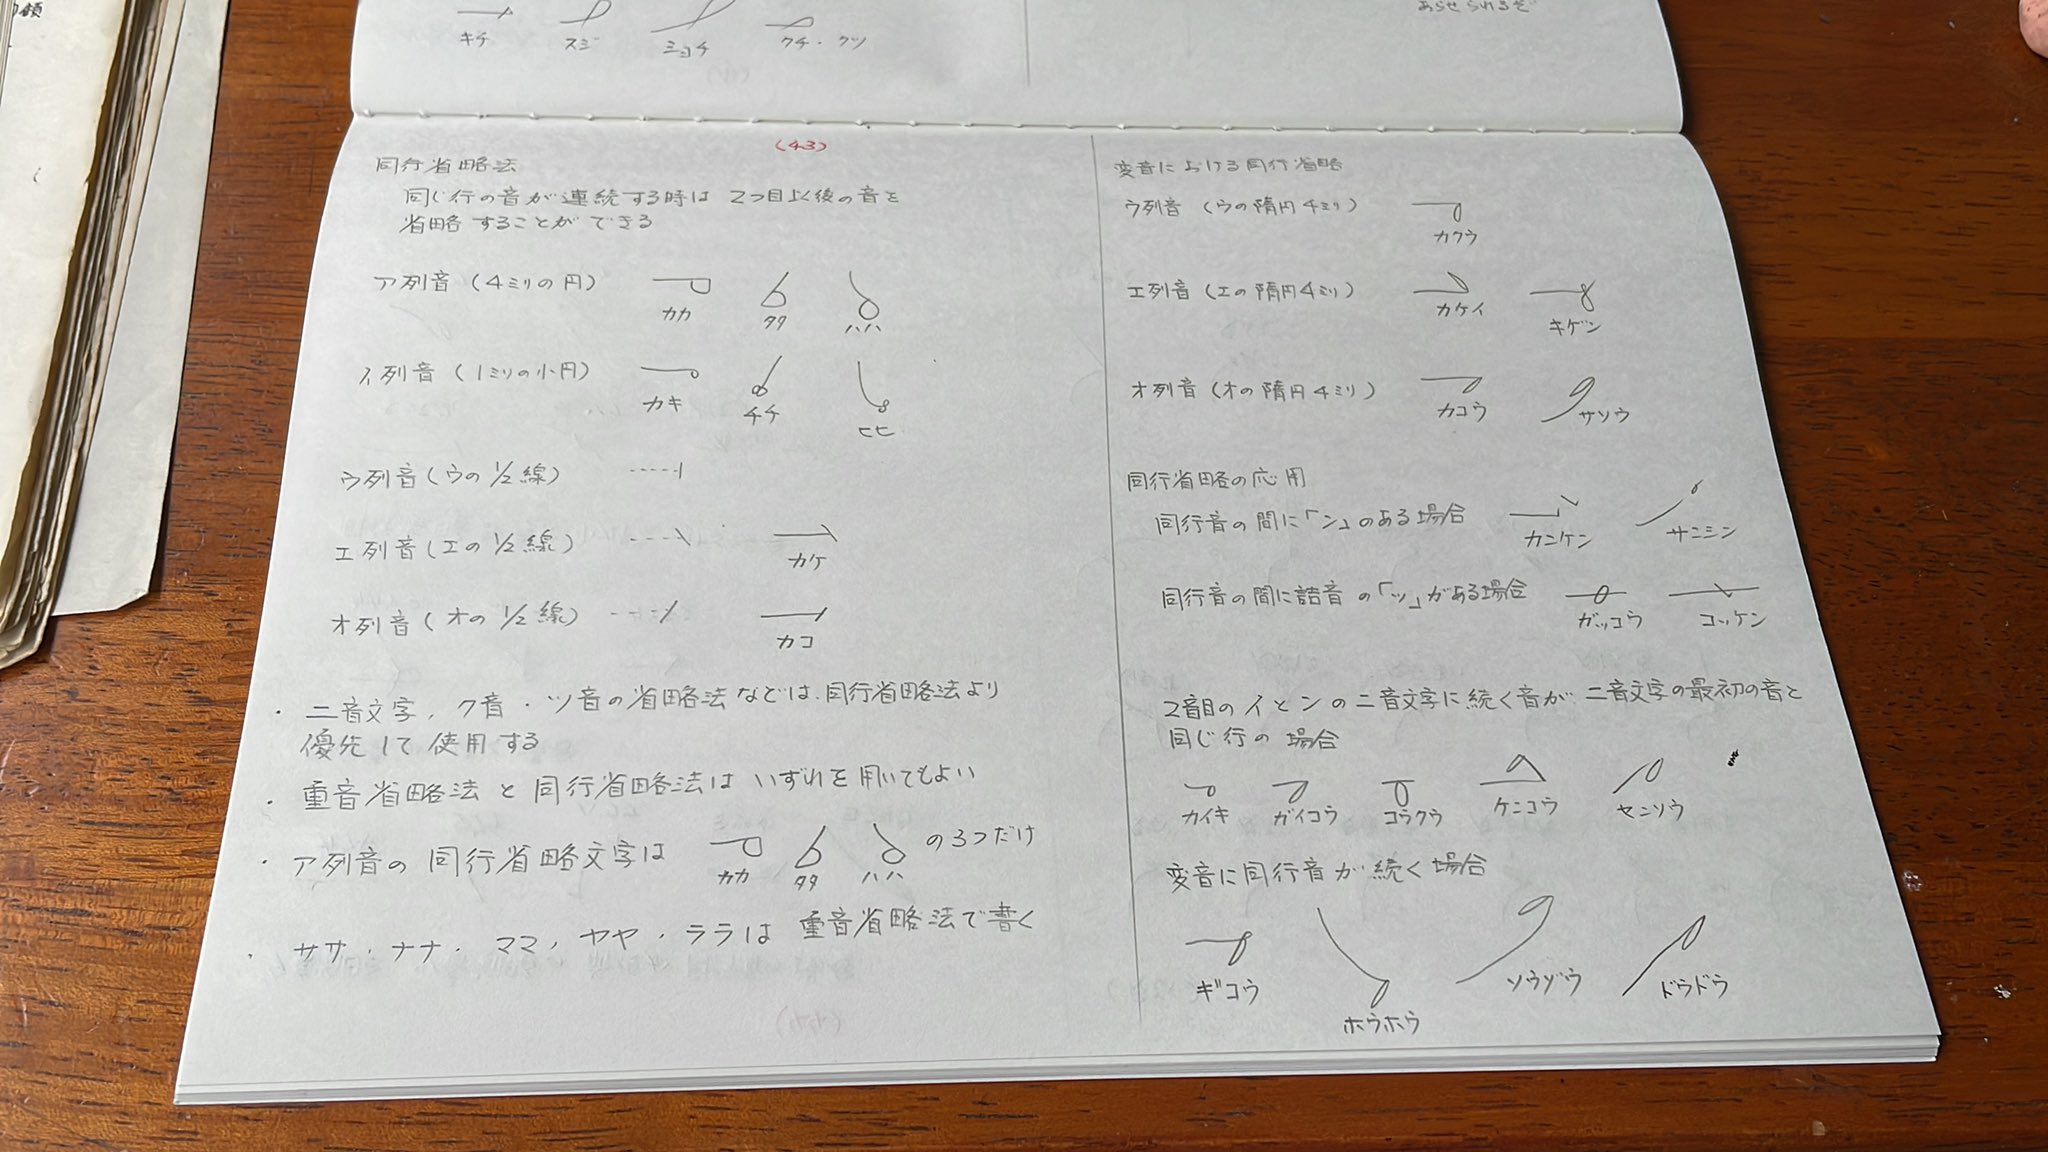 の頼
キチ スジ ミョチ クチ・クツ
あらせられるぞ
(43)
同行省略法
同じ行の音が連続する時は 2つ目上く後の音を
省略することができる
ア列音(4ミリの円) カカ タタ ハハ
イ列音(1ミリの小円) カキ チチ ヒヒ
ウ列音(ウの1/2線)
エ列音(エの1/2線) カケ
オ列音(オの1/2線) カコ
・二音文字、ク音・ツ音の省略法などは、同行省略法より
優先して使用する
・重音省略法と同行省略法はいずれを用いてもよい
・ア列音の同行省略文字は カカ タタ ハハ の3つだけ
・ササ・ナナ・ママ・ヤヤ・ララは 重音省略法で書く
変音における同行省略
ウ列音(ウの隋円4ミリ) カクウ
エ列音(エの隋円4ミリ) カケイ キゲン
オ列音(オの隋円4ミリ) カコウ サソウ
同行省略の応用
同行音の間に「ン」のある場合 カンケン サンシン
同行音の間に詰音の「ッ」がある場合 ガッコウ コッケン
2音目のイとンの二音文字に続く音が 二音文字の最初の音と
同じ行の場合
カイキ ガイコウ コウクウ ケンコウ センソウ
変音に同行音が続く場合
ギコウ ホウホウ ソウゾウ ドウドウ